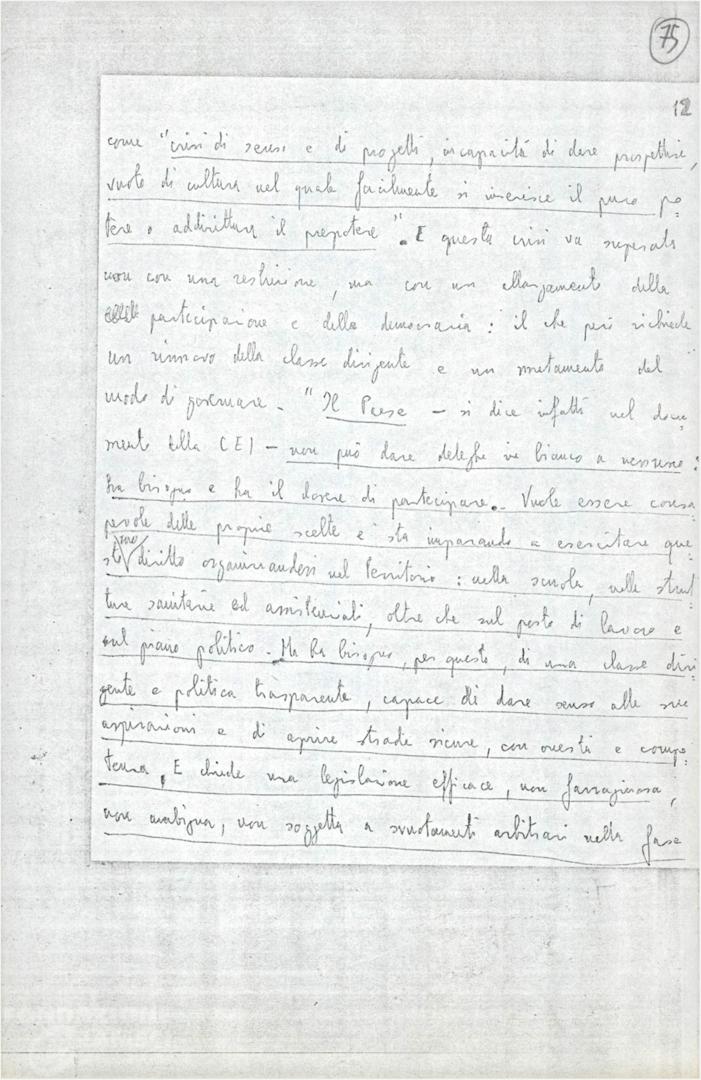 75
12
come "crisi di senso e di progetti, incapacità di dare prospettive,
vuoto di cultura nel quale facilmente si inserisce il puro po=
tere o addirittura il prepotere". E questa crisi va superata
non con una restrizione, ma con un allargamento della
partecipazione e della democrazia: il che però richiede
un rinnovo della classe dirigente e un mutamento del
modo di governare. "Il Paese - si dice infatti nel docu
mento della CEI - non può dare deleghe in bianco a nessuno:
ha bisogno e ha il dovere di partecipare. Vuole essere consa
pevole delle proprie scelte e sta imparando a esercitare que
sto suo diritto organizzandosi nel territorio: nella scuola, nelle strut
ture sanitarie ed assistenziali, oltre che sul posto di lavoro e
sul piano politico. Ma ha bisogno, per questo, di una classe diri
gente e politica trasparente, capace di dare senso alle sue
aspirazioni e di aprire strade sicure, con onestà e compe=
tenza. E chiede una legislazione efficace, non farraginosa,
non ambigua, non soggetta a svuotamenti arbitrari nella fase